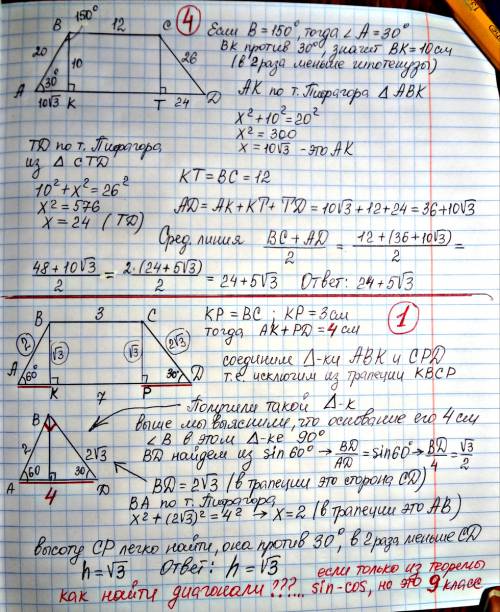 150°
B 12 C
20 10 26
A 30° D
10√3 K T 24
④ Если B = 150°, тогда ∠A = 30°
BK против 30°, значит BK = 10 см
(в 2 раза меньше гипотенузы)
AK по т. Пифагора Δ ABK
x² + 10² = 20²
x² = 300
x = 10√3 - это AK
TD по т. Пифагора
из Δ CTD
10² + x² = 26²
x² = 576
x = 24 (TD)
KT = BC = 12
AD = AK + KT + TD = 10√3 + 12 + 24 = 36 + 10√3
Сред. линия (BC + AD)/2 = (12 + (36 + 10√3))/2 =
(48 + 10√3)/2 = 2·(24 + 5√3)/2 = 24 + 5√3 Ответ: 24 + 5√3
B 3 C
2 √3 √3 2√3
A 60° 30° D
K P
7
KP = BC; KP = 3 см
тогда AK + PD = 4 см
①
соединим Δ-ки ABK и CPD
т.е. исключим из трапеции KBCP
Получили такой Δ-к
выше мы выяснили, что основание его 4 см
∠B в этом Δ-ке 90°
BD найдем из sin 60° → BD/AD = sin 60° → BD/4 = √3/2
B
2 2√3
A 60 30 D
4
BD = 2√3 (в трапеции это сторона CD)
BA по т. Пифагора
x² + (2√3)² = 4² → x = 2 (в трапеции это AB)
высоту CP легко найти, она против 30°, в 2 раза меньше CD
h = √3 Ответ: h = √3
как найти диагонали ???... если только из теоремы
sin-cos, но это 9 класс